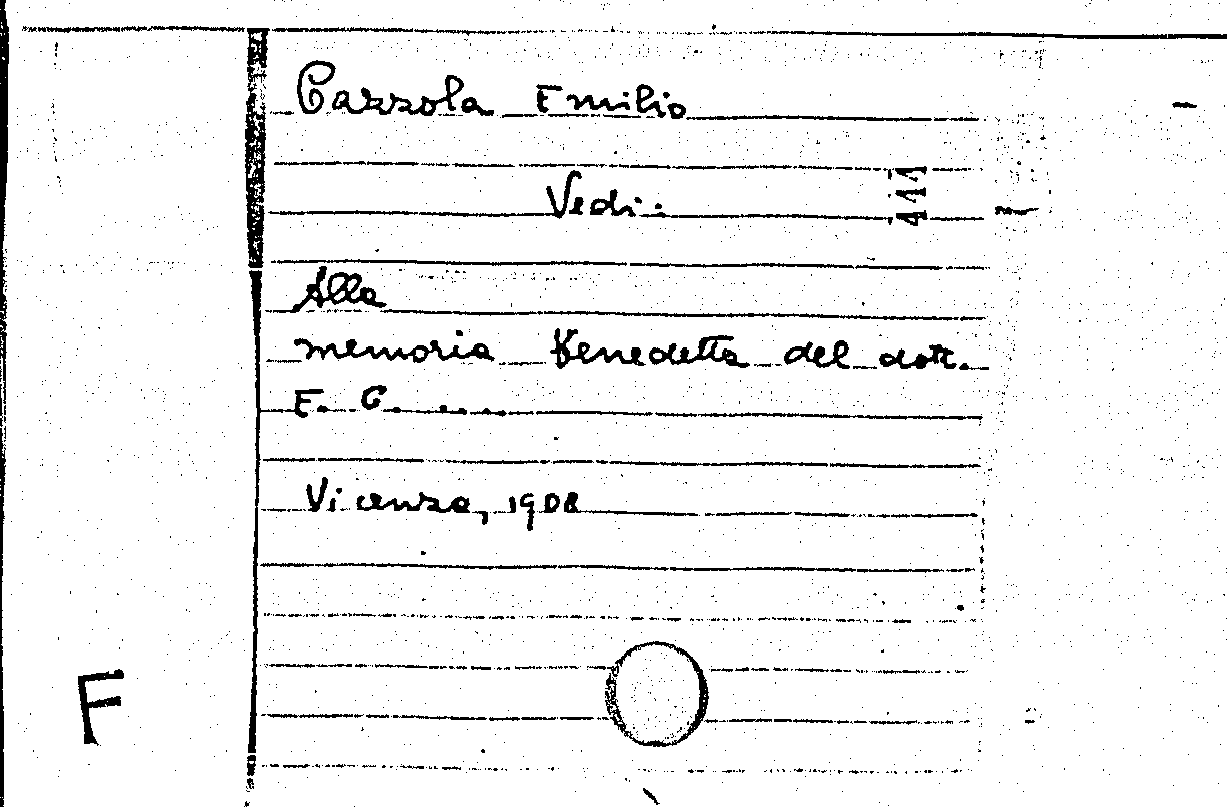 Cazzola Emilio
Vedi:
Alla
memoria benedetta del dott.
E. C. .....
Vicenza, 1908
F